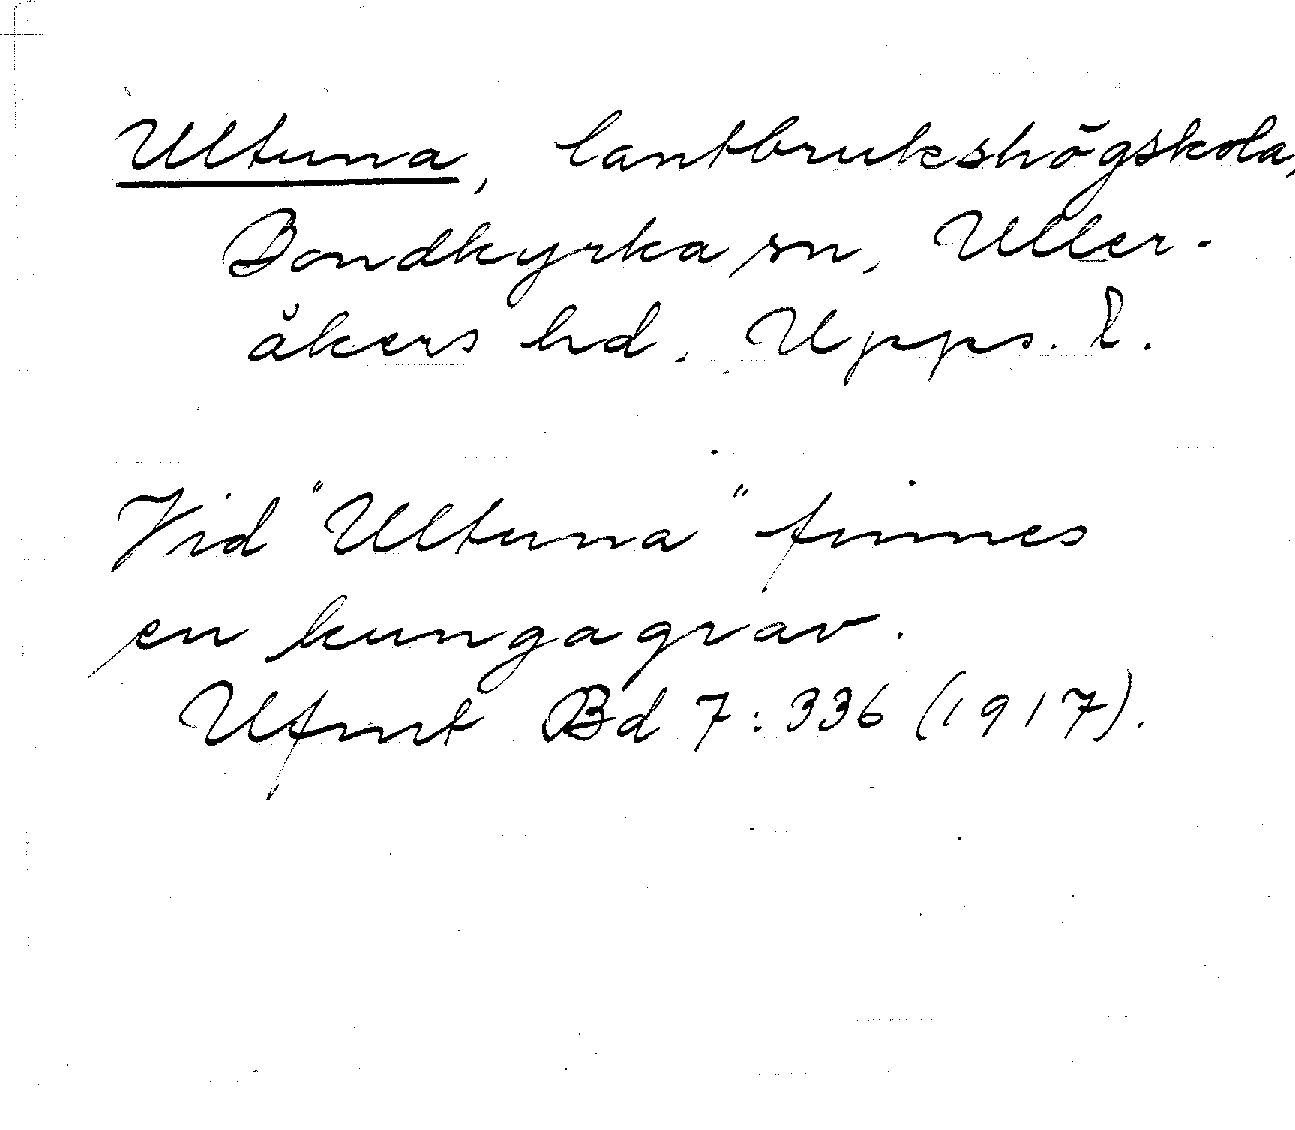 Ultuna, lantbrukshögskola,
Bondkyrka sn, Uller-
åkers hd. Upps. l.
Vid "Ultuna" finnes
en kungagrav.
Ufmt Bd 7:336 (1917).